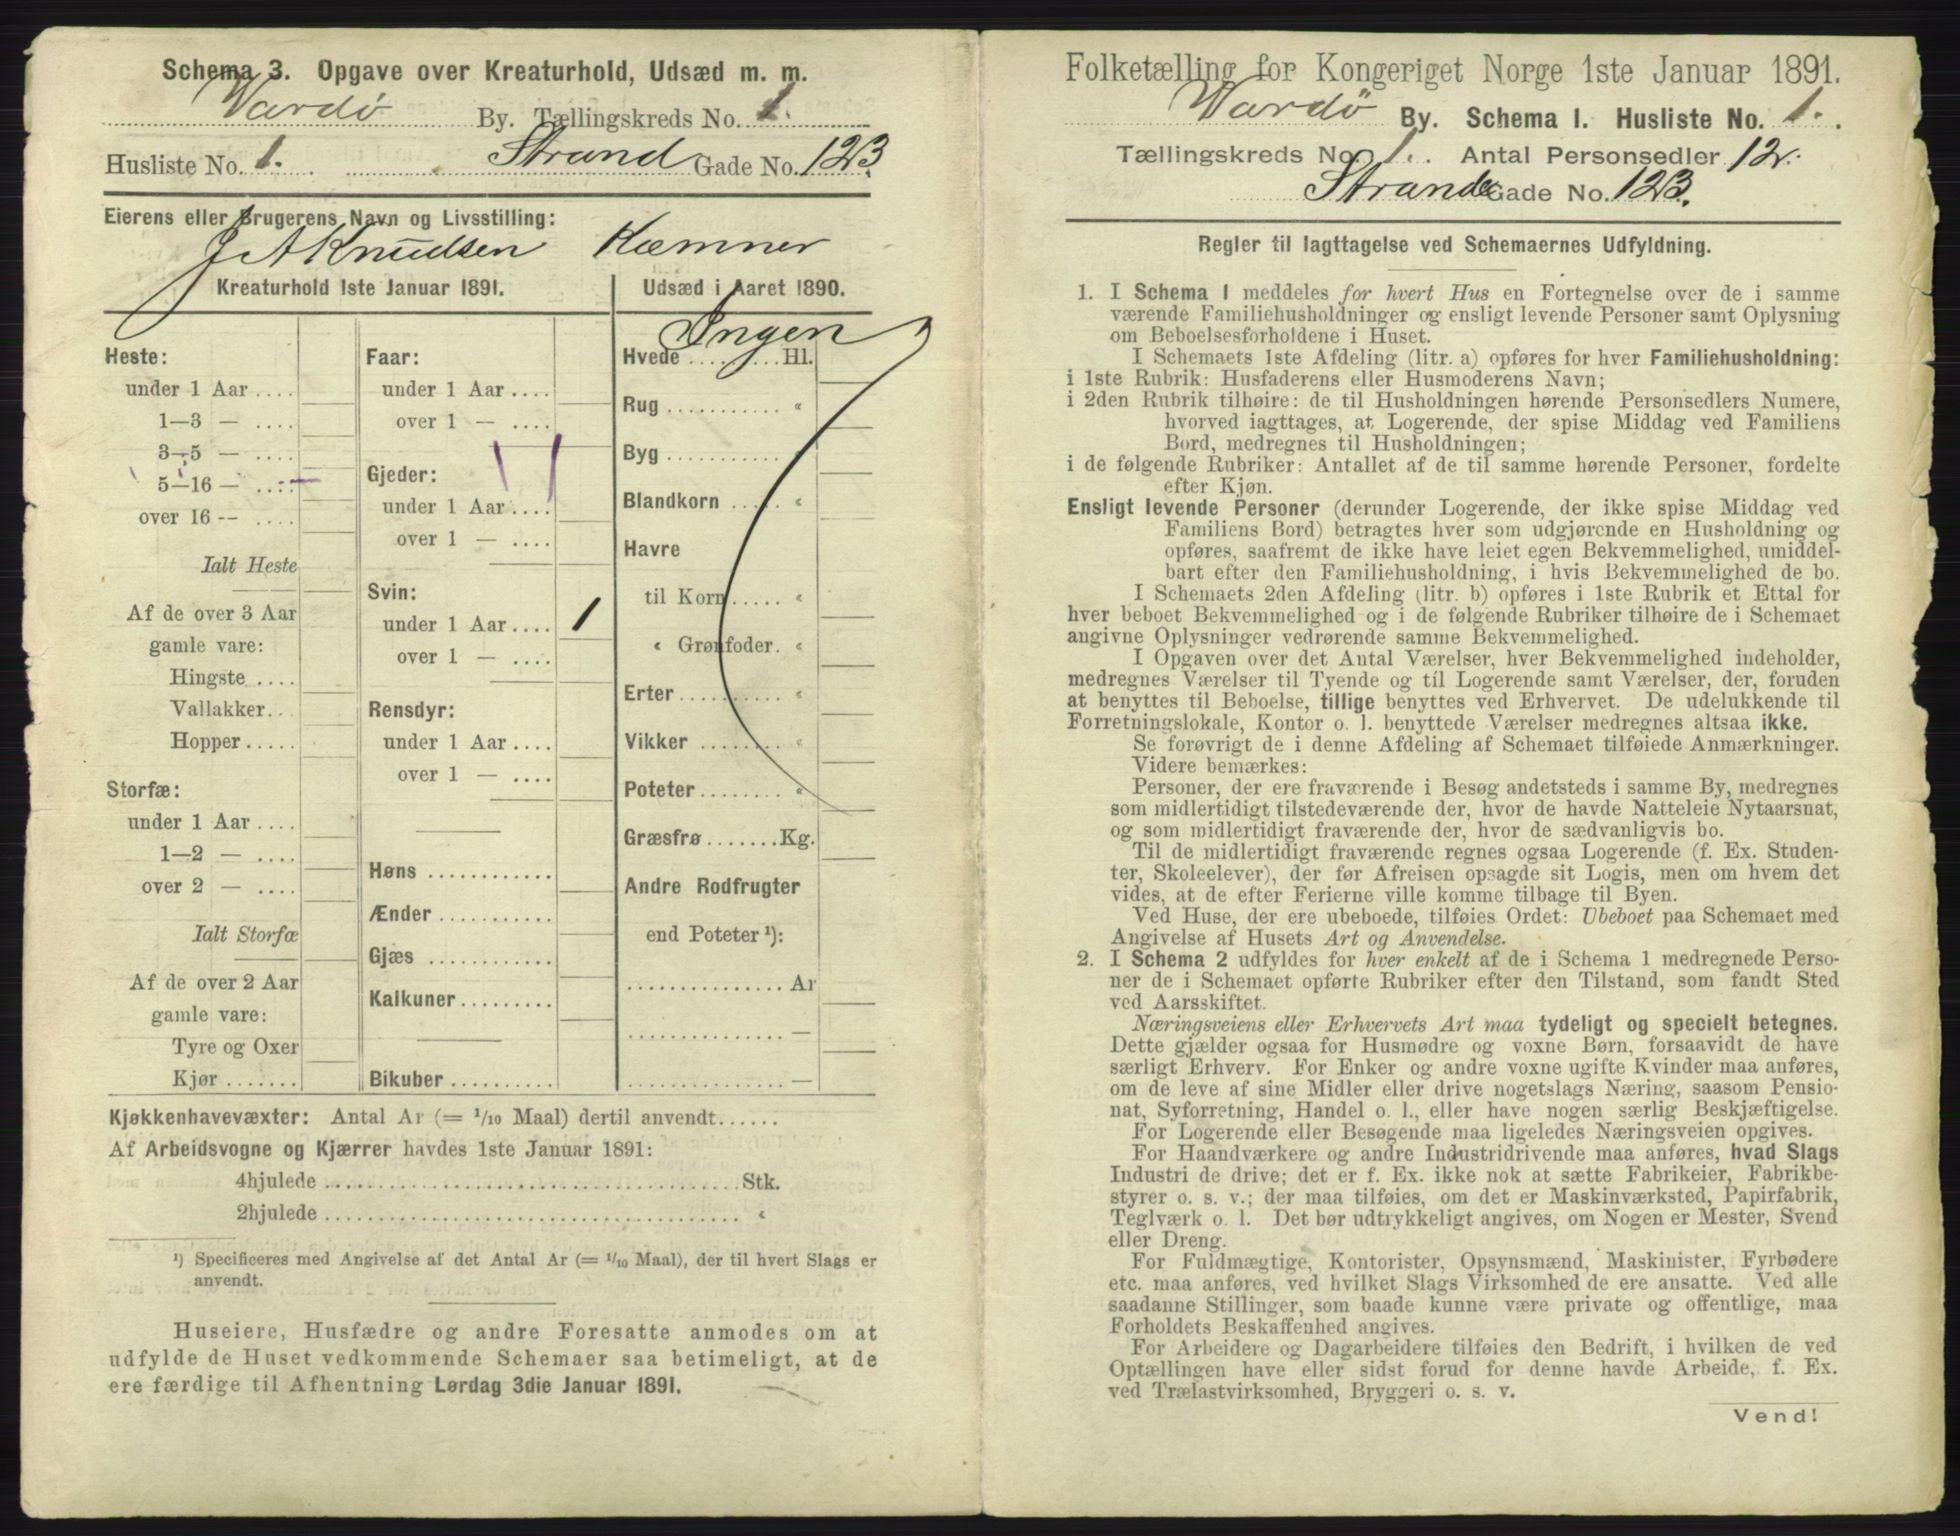 Schema 3. Opgave over Kreaturhold, Udsæd m. m.
Vardø By. Tællingskreds No. 1.
Husliste No. 1. Strand Gade No. 123.
Eierens eller Brugerens Navn og Livsstilling:
J A Knudsen Kæmner
Kreaturhold 1ste Januar 1891.
Heste:
under 1 Aar ....
1—3 — ....
3—5 — ....
5—16 — ....
over 16 — ....
Ialt Heste
Af de over 3 Aar
gamle vare:
Hingste ....
Vallakker..
Hopper.....
Storfæ:
under 1 Aar ....
1—2 — ....
over 2 — ....
Ialt Storfæ
Af de over 2 Aar
gamle vare:
Tyre og Oxer
Kjør .......
Faar:
under 1 Aar ....
over 1 — ....
Gjeder:
under 1 Aar ....
over 1 — ....
Svin:
under 1 Aar .... 1
over 1 — ....
Rensdyr:
under 1 Aar ....
over 1 — ....
Høns ............
Ænder ...........
Gjæs ............
Kalkuner.........
Bikuber ..........
Udsæd i Aaret 1890.
Ingen
Hvede ........ Hl.
Rug ........... «
Byg ........... «
Blandkorn ..... «
Havre
til Korn ..... «
« Grønfoder. «
Erter .......... «
Vikker ........ «
Poteter........ «
Græsfrø .......Kg.
Andre Rodfrugter
end Poteter ¹):
............... Ar
............... —
............... —
Kjøkkenhavevæxter: Antal Ar (= 1/10 Maal) dertil anvendt......
Af Arbeidsvogne og Kjærrer havdes 1ste Januar 1891:
4hjulede ........................................Stk.
2hjulede ........................................ «
¹) Specificeres med Angivelse af det Antal Ar (= 1/10 Maal), der til hvert Slags er
anvendt.
Huseiere, Husfædre og andre Foresatte anmodes om at
udfylde de Huset vedkommende Schemaer saa betimeligt, at de
ere færdige til Afhentning Lørdag 3die Januar 1891.
Folketælling for Kongeriget Norge 1ste Januar 1891.
Vardø By. Schema I. Husliste No. 1.
Tællingskreds No. 1. Antal Personsedler 12.
Strand Gade No. 123.
Regler til Iagttagelse ved Schemaernes Udfyldning.
1. I Schema 1 meddeles for hvert Hus en Fortegnelse over de i samme
værende Familiehusholdninger og ensligt levende Personer samt Oplysning
om Beboelsesforholdene i Huset.
I Schemaets 1ste Afdeling (litr. a) opføres for hver Familiehusholdning:
i 1ste Rubrik: Husfaderens eller Husmoderens Navn;
i 2den Rubrik tilhøire: de til Husholdningen hørende Personsedlers Numere,
hvorved iagttages, at Logerende, der spise Middag ved Familiens
Bord, medregnes til Husholdningen;
i de følgende Rubriker: Antallet af de til samme hørende Personer, fordelte
efter Kjøn.
Ensligt levende Personer (derunder Logerende, der ikke spise Middag ved
Familiens Bord) betragtes hver som udgjørende en Husholdning og
opføres, saafremt de ikke have leiet egen Bekvemmelighed, umiddel-
bart efter den Familiehusholdning, i hvis Bekvemmelighed de bo.
I Schemaets 2den Afdeling (litr. b) opføres i 1ste Rubrik et Ettal for
hver beboet Bekvemmelighed og i de følgende Rubriker tilhøire de i Schemaet
angivne Oplysninger vedrørende samme Bekvemmelighed.
I Opgaven over det Antal Værelser, hver Bekvemmelighed indeholder,
medregnes Værelser til Tyende og til Logerende samt Værelser, der, foruden
at benyttes til Beboelse, tillige benyttes ved Erhvervet. De udelukkende til
Forretningslokale, Kontor o. l. benyttede Værelser medregnes altsaa ikke.
Se forøvrigt de i denne Afdeling af Schemaet tilføiede Anmærkninger.
Videre bemærkes:
Personer, der ere fraværende i Besøg andetsteds i samme By, medregnes
som midlertidigt tilstedeværende der, hvor de havde Natteleie Nytaarsnat,
og som midlertidigt fraværende der, hvor de sædvanligvis bo.
Til de midlertidigt fraværende regnes ogsaa Logerende (f. Ex. Studen-
ter, Skoleelever), der før Afreisen opsagde sit Logis, men om hvem det
vides, at de efter Ferierne ville komme tilbage til Byen.
Ved Huse, der ere ubeboede, tilføies Ordet: Ubeboet paa Schemaet med
Angivelse af Husets Art og Anvendelse.
2. I Schema 2 udfyldes for hver enkelt af de i Schema 1 medregnede Perso-
ner de i Schemaet opførte Rubriker efter den Tilstand, som fandt Sted
ved Aarsskiftet.
Næringsveiens eller Erhvervets Art maa tydeligt og specielt betegnes.
Dette gjælder ogsaa for Husmødre og voxne Børn, forsaavidt de have
særligt Erhverv. For Enker og andre voxne ugifte Kvinder maa anføres,
om de leve af sine Midler eller drive nogetslags Næring, saasom Pensio-
nat, Syforretning, Handel o. l., eller have nogen særlig Beskjæftigelse.
For Logerende eller Besøgende maa ligeledes Næringsveien opgives.
For Haandværkere og andre Industridrivende maa anføres, hvad Slags
Industri de drive; det er f. Ex. ikke nok at sætte Fabrikeier, Fabrikbe-
styrer o. s. v.; der maa tilføies, om det er Maskinværksted, Papirfabrik,
Teglværk o. l. Det bør udtrykkeligt angives, om Nogen er Mester, Svend
eller Dreng.
For Fuldmægtige, Kontorister, Opsynsmænd, Maskinister, Fyrbødere
etc. maa anføres, ved hvilket Slags Virksomhed de ere ansatte. Ved alle
saadanne Stillinger, som baade kunne være private og offentlige, maa
Forholdets Beskaffenhed angives.
For Arbeidere og Dagarbeidere tilføies den Bedrift, i hvilken de ved
Optællingen have eller sidst forud for denne havde Arbeide, f. Ex.
ved Trælastvirksomhed, Bryggeri o. s. v.
Vend!